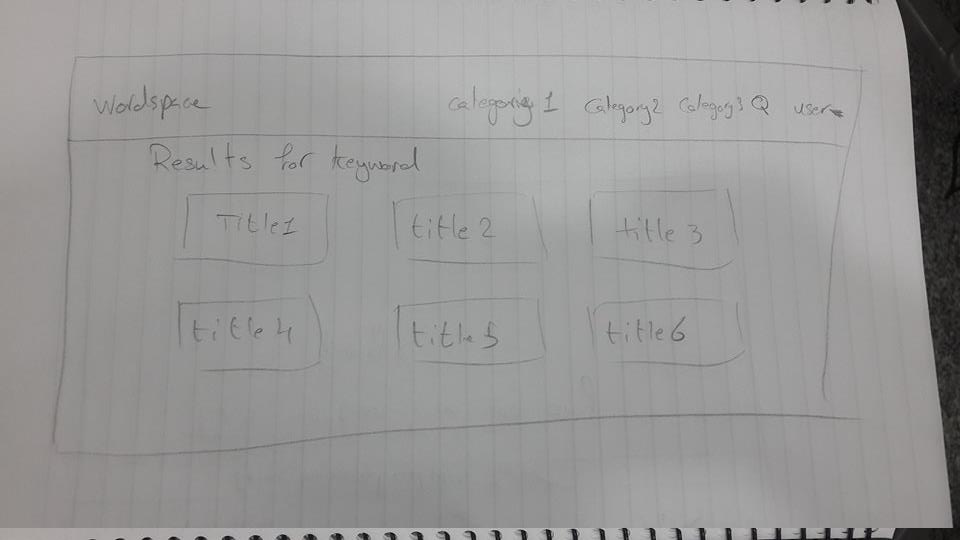 Wordspace Category 1 Category2 Category3 user
Results for keyword
Title1 title 2 title 3
title 4 title 5 title6